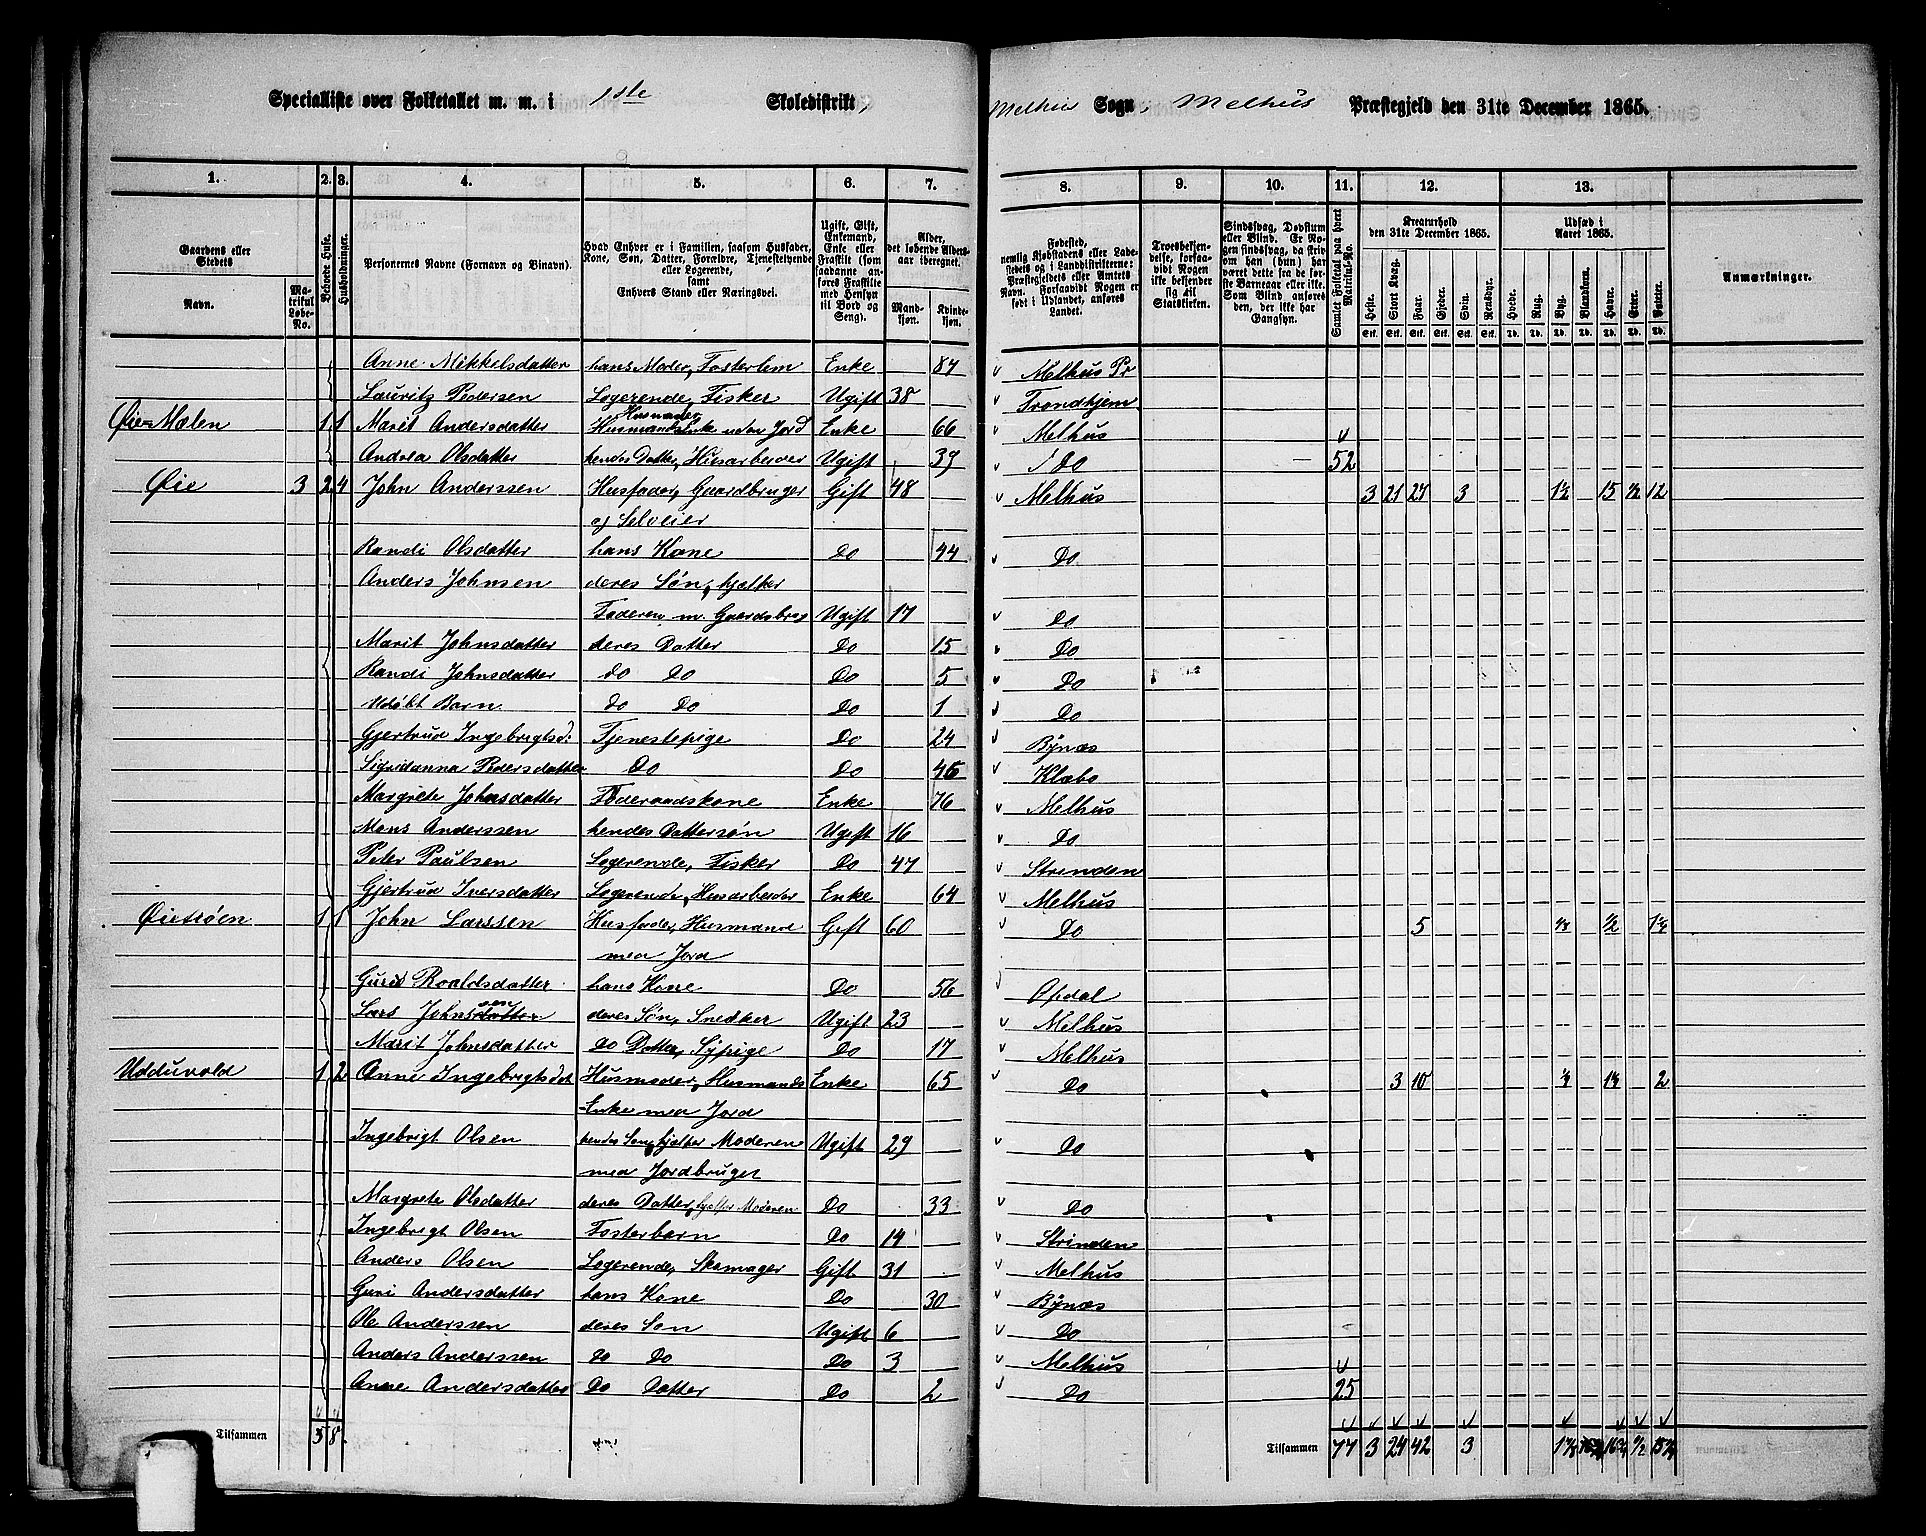 Specialliste over Folketallet m. m. i 1ste Skoledistrikt, Melhus Sogn, Melhus Præstegjeld den 31te December 1865.
1. 2. 3. 4. 5. 6. 7. 8. 9. 10. 11. 12. 13.
Gaardens eller Stedets Navn. Matrikul Løbe-No. Beboede Huse. Husholdninger. Personernes Navne (Fornavn og Binavn). Hvad Enhver er i Familien, saasom Husfader, Kone, Søn, Datter, Forældre, Tjenestetyende eller Logerende, samt Enhvers Stand eller Næringsvei. Ugift, Gift, Enkemand, Enke eller Fraskilt (som saadanne anføres Fraskilte med Hensyn til Bord og Seng). Alder, det løbende Alders-aar iberegnet. Mandkjøn. Kvindekjøn.
Fødested, nemlig Kjøbstadens eller Ladestedets og i Landdistrikterne: Præstegjeldets eller Amtets Navn. Forsaavidt Nogen er født i Udlandet, anføres Landet. Troesbekjendelse, forsaavidt Nogen ikke bekjender sig til Statskirken. Sindssvag, Døvstum eller Blind. Er Nogen sindssvag, da skrives om han (hun) har været dette fra de første Barneaar eller ikke. Som Blind anføres den, der ikke har Gangsyn. Samlet Folketal paa hvert Matrikul-No. Kreaturhold den 31te December 1865. Heste. Stort Kvæg. Faar. Gjeder. Svin. Rensdyr. Udsæd i Aaret 1865. Hvede. Rug. Byg. Blandkorn. Havre. Erter. Poteter. Anmærkninger.
Anne Mikkelsdatter hans Moder, Fosterlem Enke 87 Melhus Pr
Lauritz Pedersen Logerende, Fisker Ugift 38 Trondhjem
Husmoder,
Øie-Mælen 1 1 Marit Andersdatter Husmandsenke uden Jord Enke 66 Melhus
Andrea Olsdatter hendes Datter, Husarbeider Ugift 39 Do 52
Øie 3 2 4 John Anderssen Husfader, Gaardbruger Gift 48 Melhus 3 21 27 3 1½ 15 ½ 12
og Selveier
Randi Olsdatter hans Kone Do 44 Do
Anders Johnsen deres Søn, hjælper
Faderen m. Gaardsbrug Ugift 17 Do
Marit Johnsdatter deres Datter Do 15 Do
Randi Johnsdatter do Do Do 5 Do
Udøbt Barn do Do Do 1 Do
Gjertrud Ingebrigtsd: Tjenestepige Do 24 Bynæs
Sigridanna Pedersdatter Do Do 46 Klæbo
Margrete Johnsdatter Føderaadskone Enke 76 Melhus
Mons Anderssen hendes Dattersøn Ugift 16 Do
Peter Paulsen Logerende, Fisker Do 47 Strinden
Gjertrud Iversdatter Logerende, Husarbeider Enke 64 Melhus
Øiesøen 1 1 John Larssen Husfader, Husmand Gift 60 Do 5 ½
med Jord
Guru Roaldsdatter hans Kone Do 56 Opdal
Lars Johnssen deres Søn, Snedker Ugift 23 Melhus
Marit Johnsdatter Do Datter, Sypige Do 17 Melhus
Udduvold 1 2 Anne Ingebrigtsdat Husmoder, Husmands Enke 65 Do 3 10 2
Enke med Jord
Ingebrigt Olsen hendes Søn, hjælper Moderen Ugift 29 Do
med Jordbruget
Margrete Olsdatter deres Datter, hjelper Moderen Do 33 Do
Ingebrigt Olsen Fosterbarn Do 14 Strinden
Anders Olsen Logerende, Skomager Gift 31 Melhus
Guri Andersdatter hans Kone Do 30 Bynæs
Ole Anderssen deres Søn Ugift 6 Do
Anders Anderssen Do Do Do 3 Melhus
Anne Andersdatter Do Datter Do 2 Do 25
Tilsammen 5 8 Tilsammen 77 3 24 42 3 ½